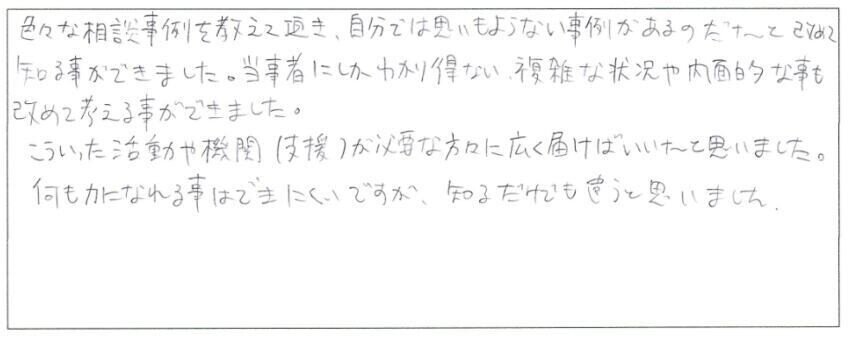 色々な相談事例を教えて頂き、自分では思いもよらない事例があるのだな〜と改めて
知る事ができました。当事者にしかわかり得ない、複雑な状況や内面的な事も
改めて考える事ができました。
こういった活動や機関(支援)が必要な方々に広く届けばいいな〜と思いました。
何も力になれる事はできにくいですが、知るだけでも違うと思いました。